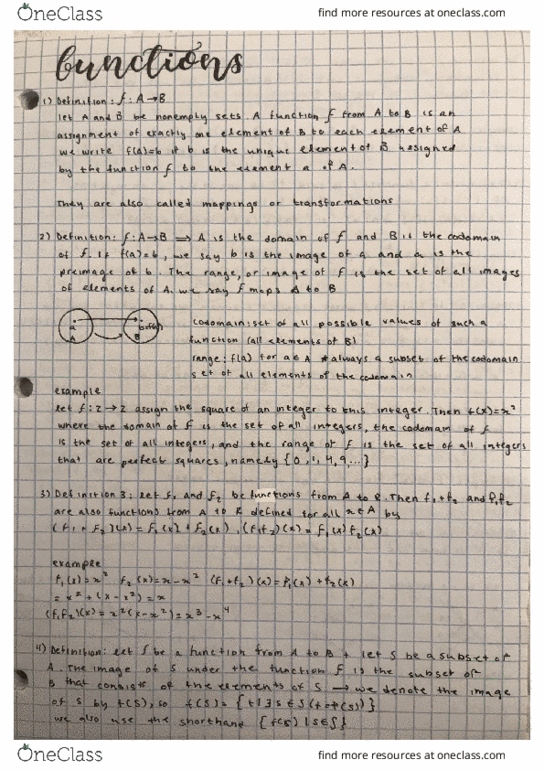 OneClass
find more resources at oneclass.com
functions
1) Definition: f: A→B
let A and B be nonempty sets A function f from A to B is an
assignment of exactly one element of B to each element of A
we write f(a)=b if b is the unique element of B assigned
by the function f to the element a of A.
They are also called mappings or transformations
2) Definition: f: A→B ⟹ A is the domain of f and B is the codomain
of f. if f(a)=b, we say b is the image of a and a is the
preimage of b. The range, or image of f is the set of all images
of elements of A. we say f maps A to B
a b=f(a)
A B
codomain: set of all possible values of such a
function (all elements of B)
range: f(a) for a∈A *always a subset of the codomain
set of all elements of the codomain
example
let f: Z→Z assign the square of an integer to this integer. Then f(x)=x²
where the domain of f is the set of all integers, the codomain of f
is the set of all integers, and the range of f is the set of all integers
that are perfect squares, namely {0,1,4,9,...}
3) Definition 3: let f₁ and f₂ be functions from A to R. Then f₁+f₂ and f₁f₂
are also functions from A to R defined for all x∈A by
(f₁+f₂)(x)=f₁(x)+f₂(x), (f₁f₂)(x)=f₁(x)f₂(x)
example
f₁(x)=x² f₂(x)=x-x² (f₁+f₂)(x)=f₁(x)+f₂(x)
=x²+(x-x²)=x
(f₁f₂)(x)=x²(x-x²)=x³-x⁴
4) Definition: let f be a function from A to B + let S be a subset of
A. The image of S under the function f is the subset of
B that consists of the elements of S → we denote the image
of S by f(S), so f(S)={t|∃s∈S(t=f(s))}
we also use the shorthand {f(s)|s∈S}
OneClass
find more resources at oneclass.com